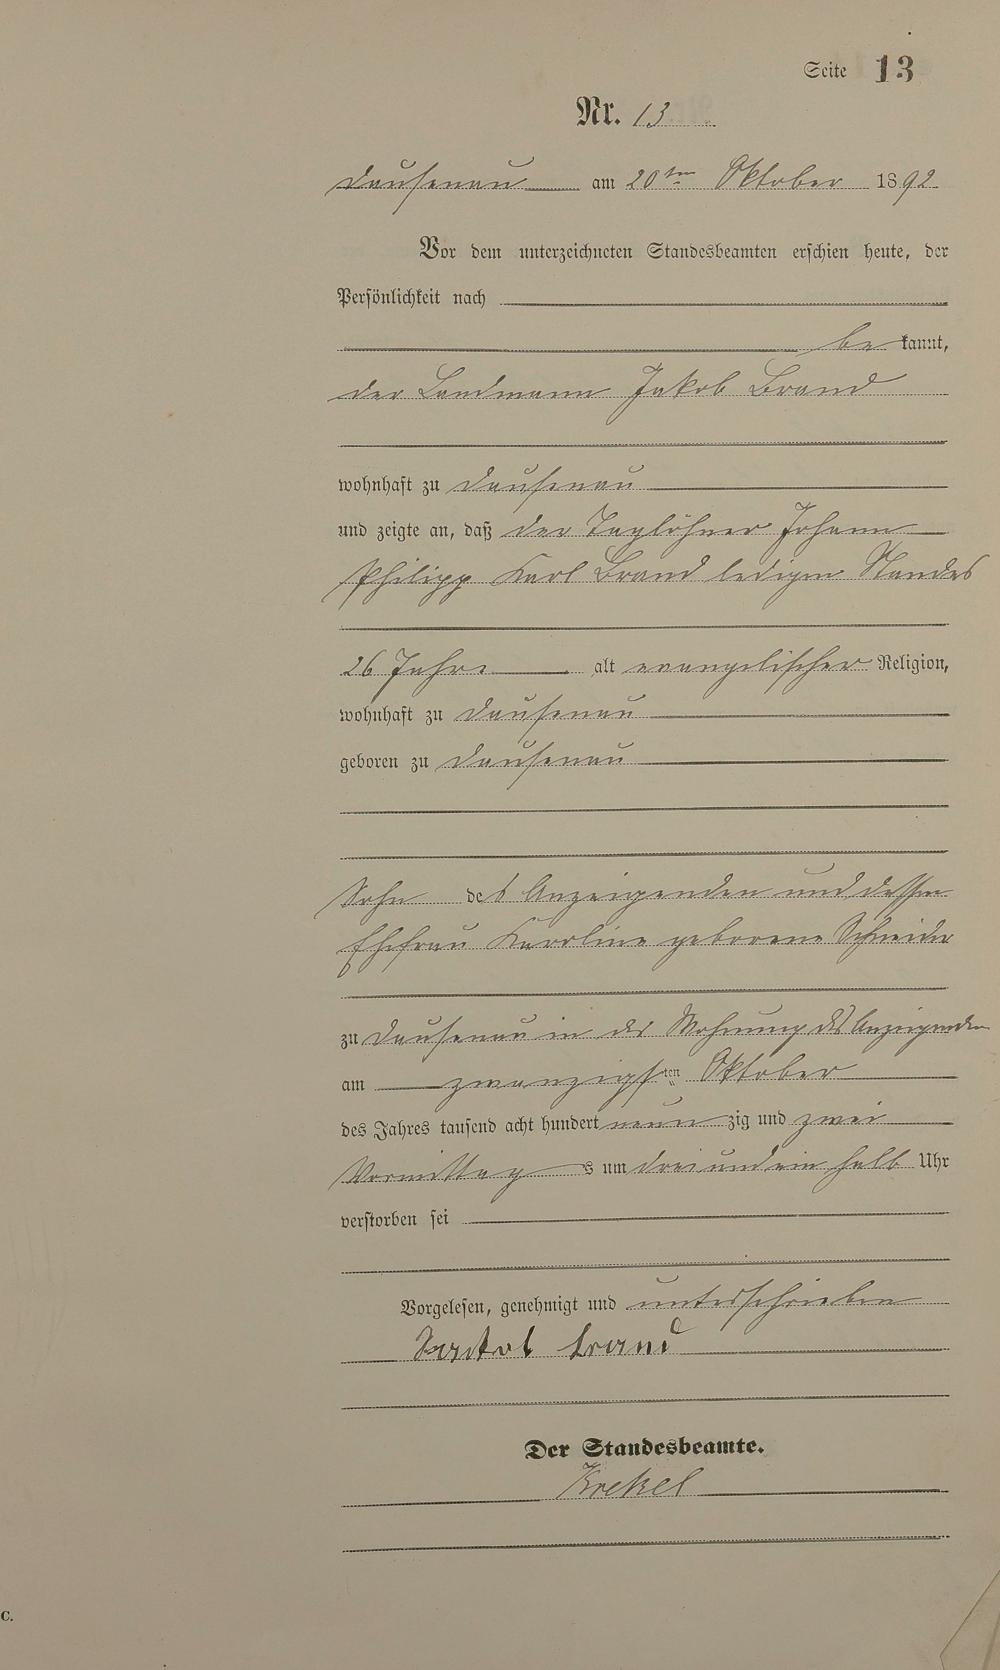 Seite 13
Nr. 13
Dausenau am 20ten Oktober 1892
Vor dem unterzeichneten Standesbeamten erschien heute, der
Persönlichkeit nach
be kannt,
der Landmann Jakob Brand
wohnhaft zu Dausenau
und zeigte an, daß der Taglöhner Johann
Philipp Karl Brand ledigen Standes
26 Jahre alt evangelischer Religion,
wohnhaft zu Dausenau
geboren zu Dausenau
Sohn des Anzeigenden und dessen
Ehefrau Karoline geborene Schneider
zu Dausenau in der Wohnung des Anzeigenden
am zwanzigsten Oktober
des Jahres tausend acht hundert neun zig und zwei
Vormittag s um drei und ein halb Uhr
verstorben sei
Vorgelesen, genehmigt und unterschrieben
Jackob Brand
Der Standesbeamte.
Krekel
C.